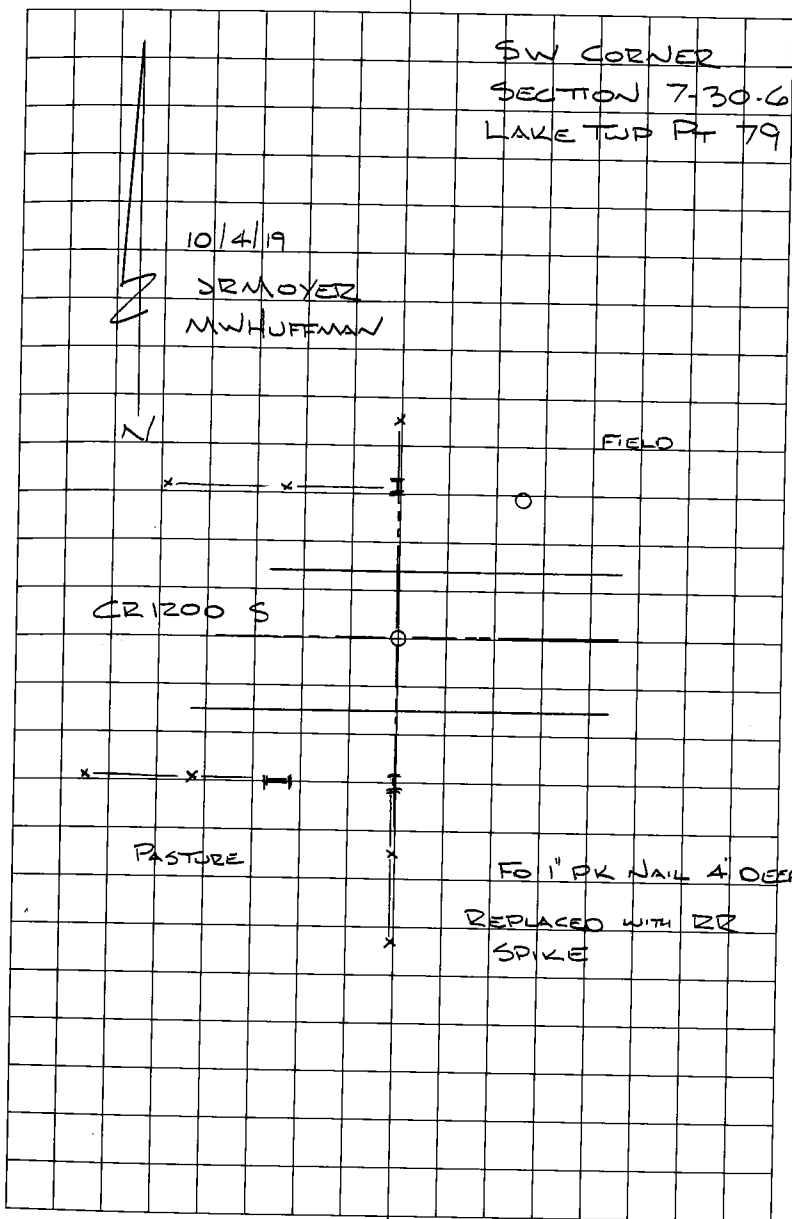 SW CORNER
SECTION 7-30-6
LAKE TWP PT 79
10/4/19
JRMOYER
MWHUFFMAN
N
FIELD
CR 1200 S
PASTURE
FD 1" PK NAIL 4" DEEP
REPLACED WITH RR
SPIKE